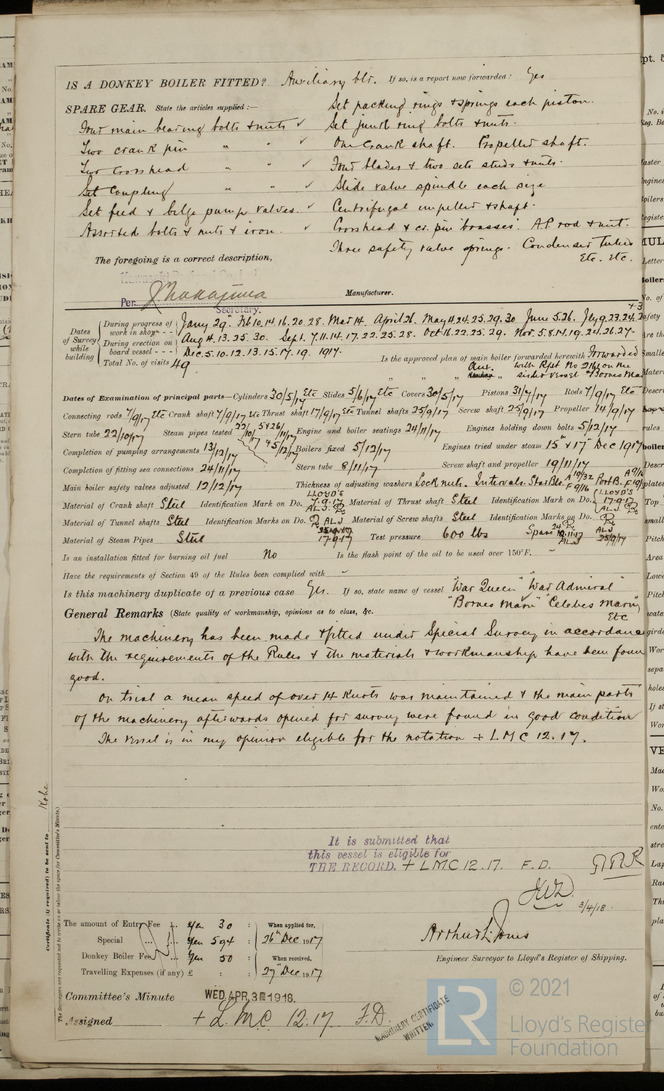 IS A DONKEY BOILER FITTED? Auxiliary blr. If so, is a report now forwarded? Yes
SPARE GEAR. State the articles supplied:— Set packing rings & springs each piston.
Four main bearing bolts & nuts ✓ Set junk ring bolts & nuts.
Two crank pin " " ✓ One crank shaft. Propeller shaft.
Two crosshead " " ✓ Four blades & two sets studs & nuts.
Set coupling " " ✓ Slide valve spindle each size
Set feed & bilge pump valves. ✓ Centrifugal impeller & shaft.
Assorted bolts & nuts & iron. ✓ Crosshead & cr. pin brasses. A.P. rod & nut.
Three safety valve springs. Condenser tubes
Etc. Etc.
The foregoing is a correct description,
Per Manufacturer.
Secretary.
Dates of Survey while building
During progress of work in shops - - Jany 29. Feb 10.14.16.20.28. Mar 14. April 26. May 4.24.25.29.30 June 5.26. July 9.23.24.
During erection on board vessel - - - Aug 4.13.25.30. Sept. 7.11.14.17.22.25.28. Oct 16.22.25.29. Nov. 5.8.14.19.24.26.27.
Dec. 5.10.12.13.15.17.19. 1917.
Total No. of visits 49 Is the approved plan of main boiler forwarded herewith Forwarded
with Rpt No on the
" " " sister vessel "Borneo Maru"
Dates of Examination of principal parts—Cylinders 30/5/17 Etc Slides 5/6/17 Etc Covers 30/5/17 Pistons 31/7/17 Rods 7/9/17 Etc
Connecting rods 7/9/17 Etc Crank shaft 7/9/17 Etc Thrust shaft 17/9/17 Etc Tunnel shafts 25/9/17 Screw shaft 25/9/17 Propeller 14/9/17
Stern tube 22/10/17 Steam pipes tested Engine and boiler seatings 24/11/17 Engines holding down bolts 5/12/17
Completion of pumping arrangements 13/12/17 Boilers fixed 5/12/17 Engines tried under steam 15 & 17 Dec 1917
Completion of fitting sea connections 24/11/17 Stern tube 8/11/17 Screw shaft and propeller 19/11/17
Main boiler safety valves adjusted 12/12/17 Thickness of adjusting washers Lock nuts.
Material of Crank shaft Steel Identification Mark on Do. LLOYD'S 7.9.17 ALJ Material of Thrust shaft Steel Identification Mark on Do. LLOYD'S 17.9.17 ALJ
Material of Tunnel shafts Steel Identification Marks on Do. ALJ Material of Screw shafts Steel Identification Marks on Do.
Material of Steam Pipes Steel Test pressure 600 lbs
Is an installation fitted for burning oil fuel No Is the flash point of the oil to be used over 150°F.
Have the requirements of Section 49 of the Rules been complied with
Is this machinery duplicate of a previous case Yes. If so, state name of vessel "War Queen" "War Admiral"
"Borneo Maru" "Celebes Maru"
Etc
General Remarks (State quality of workmanship, opinions as to class, &c.
The machinery has been made & fitted under Special Survey in accordance
with the requirements of the Rules & the materials & workmanship have been found
good.
On trial a mean speed of over 14 Knots was maintained & the main parts
of the machinery afterwards opened for survey were found in good condition
The vessel is in my opinion eligible for the notation + LMC 12.17.
It is submitted that
this vessel is eligible for
THE RECORD. + LMC 12.17. F.D.
3/4/18.
Certificate (if required) to be sent to Kobe
The amount of Entry Fee .. Yen 30 : When applied for,
Special .. Yen 594 : 26th Dec 1917
Donkey Boiler Fee .. Yen 50 : When received,
Travelling Expenses (if any) £ : : 27th Dec 1917
Arthur L. Jones
Engineer Surveyor to Lloyd's Register of Shipping.
Committee's Minute WED. APR. 3 1918.
Assigned + LMC 12.17 F.D.
MACHINERY CERTIFICATE
WRITTEN
LR
© 2021
Lloyd's Register
Foundation